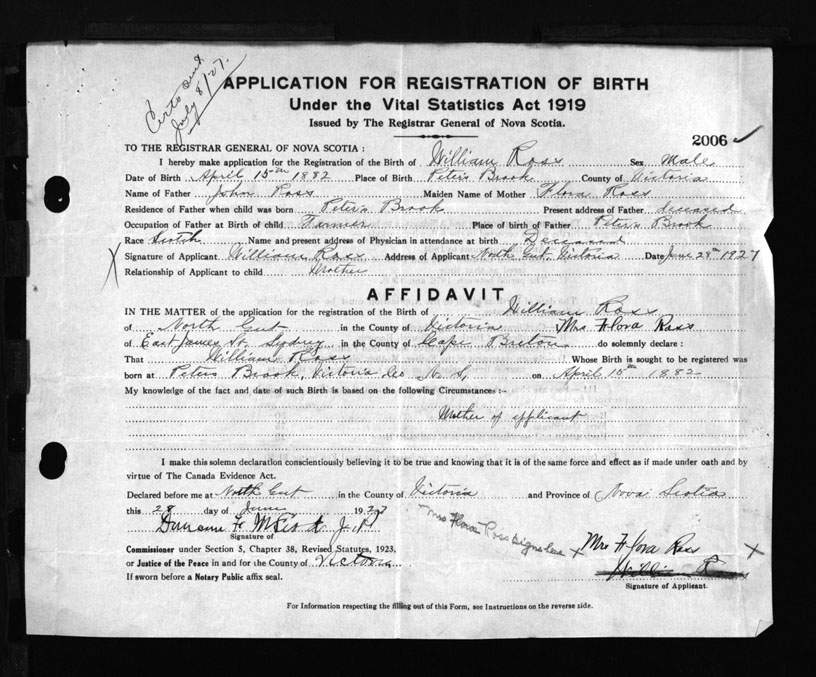 Certs sent
July 8/27.
APPLICATION FOR REGISTRATION OF BIRTH
Under the Vital Statistics Act 1919
Issued by The Registrar General of Nova Scotia.
2006
TO THE REGISTRAR GENERAL OF NOVA SCOTIA :
I hereby make application for the Registration of the Birth of William Ross Sex Male
Date of Birth April 15th 1882 Place of Birth Peter's Brook County of Victoria
Name of Father John Ross Maiden Name of Mother Flora Ross
Residence of Father when child was born Peter's Brook Present address of Father deceased
Occupation of Father at Birth of child Farmer Place of birth of Father Peter's Brook
Race Scotch Name and present address of Physician in attendance at birth Deceased
Signature of Applicant William Ross Address of Applicant North Gut, Victoria Date June 28th 1927
Relationship of Applicant to child Mother
AFFIDAVIT
IN THE MATTER of the application for the registration of the Birth of William Ross
of North Gut in the County of Victoria Mrs Flora Ross
of East James St. Sydney in the County of Cape Breton do solemnly declare :
That William Ross Whose Birth is sought to be registered was
born at Peters Brook, Victoria Co N. S, on April 15th 1882
My knowledge of the fact and date of such Birth is based on the following Circumstances :-
Mother of applicant
I make this solemn declaration conscientiously believing it to be true and knowing that it is of the same force and effect as if made under oath and by
virtue of The Canada Evidence Act.
Declared before me at North Gut in the County of Victoria and Province of Nova Scotia
this 28 day of June 1927
Duncan J. P.
Mrs Flora Ross signature x Mrs Flora Ross x
Signature of
Commissioner under Section 5, Chapter 38, Revised Statutes, 1923,
or Justice of the Peace in and for the County of Victoria
If sworn before a Notary Public affix seal.
Signature of Applicant.
For Information respecting the filling out of this Form, see Instructions on the reverse side.